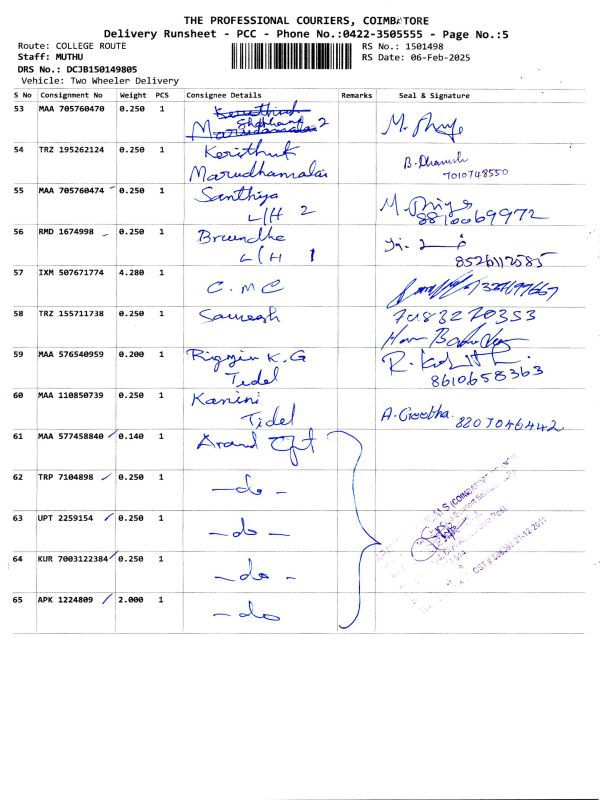 THE PROFESSIONAL COURIERS, COIMBATORE
Delivery Runsheet - PCC - Phone No.:0422-3505555 - Page No.:5
Route: COLLEGE ROUTE
RS No.: 1501498
Staff: MUTHU
RS Date: 06-Feb-2025
DRS No.: DCJB150149805
Vehicle: Two Wheeler Delivery
S No Consignment No Weight PCS Consignee Details Remarks Seal & Signature
53 MAA 705760470 0.250 1
Marudamalai 2
54 TRZ 195262124 0.250 1 Keristhuk
Marudhamalai
B. Dhanush
7010748550
55 MAA 705760474 0.250 1 Santhiya
L/H 2
M. Priya
8810069972
56 RMD 1674998 0.250 1 Brundha
L/H 1
8526112585
57 IXM 507671774 4.280 1 C.M.C
58 TRZ 155711738 0.250 1
7083270353
59 MAA 576540959 0.200 1 Rigzin K.G
Tidel
8610658363
60 MAA 110850739 0.250 1 Kanini
Tidel
A. Geetha.
8207046442
61 MAA 577458840 0.140 1
62 TRP 7104898 0.250 1 - do -
63 UPT 2259154 0.250 1 - do -
64 KUR 7003122384 0.250 1 - do -
65 APK 1224809 2.000 1 - do